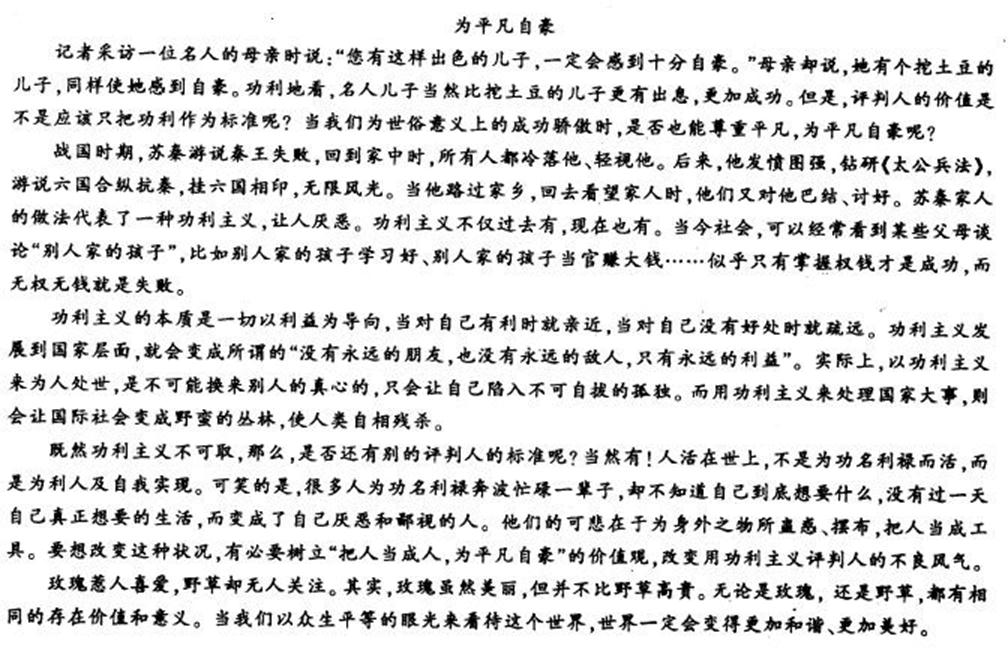 为平凡自豪
记者采访一位名人的母亲时说:“您有这样出色的儿子,一定会感到十分自豪。”母亲却说,她有个挖土豆的
儿子,同样使她感到自豪。功利地看,名人儿子当然比挖土豆的儿子更有出息,更加成功。但是,评判人的价值是
不是应该只把功利作为标准呢?当我们为世俗意义上的成功骄傲时,是否也能尊重平凡,为平凡自豪呢?
战国时期,苏秦游说秦王失败,回到家中时,所有人都冷落他、轻视他。后来,他发愤图强,钻研《太公兵法》,
游说六国合纵抗秦,挂六国相印,无限风光。当他路过家乡,回去看望家人时,他们又对他巴结、讨好。苏秦家人
的做法代表了一种功利主义,让人厌恶。功利主义不仅过去有,现在也有。当今社会,可以经常看到某些父母谈
论“别人家的孩子”,比如别人家的孩子学习好、别人家的孩子当官赚大钱……似乎只有掌握权钱才是成功,而
无权无钱就是失败。
功利主义的本质是一切以利益为导向,当对自己有利时就亲近,当对自己没有好处时就疏远。功利主义发
展到国家层面,就会变成所谓的“没有永远的朋友,也没有永远的敌人,只有永远的利益”。实际上,以功利主义
来为人处世,是不可能换来别人的真心的,只会让自己陷入不可自拔的孤独。而用功利主义来处理国家大事,则
会让国际社会变成野蛮的丛林,使人类自相残杀。
既然功利主义不可取,那么,是否还有别的评判人的标准呢?当然有!人活在世上,不是为功名利禄而活,而
是为利人及自我实现。可笑的是,很多人为功名利禄奔波忙碌一辈子,却不知道自己到底想要什么,没有过一天
自己真正想要的生活,而变成了自己厌恶和鄙视的人。他们的可悲在于为身外之物所蛊惑、摆布,把人当成工
具。要想改变这种状况,有必要树立“把人当成人,为平凡自豪”的价值观,改变用功利主义评判人的不良风气。
玫瑰惹人喜爱,野草却无人关注。其实,玫瑰虽然美丽,但并不比野草高贵。无论是玫瑰,还是野草,都有相
同的存在价值和意义。当我们以众生平等的眼光来看待这个世界,世界一定会变得更加和谐、更加美好。